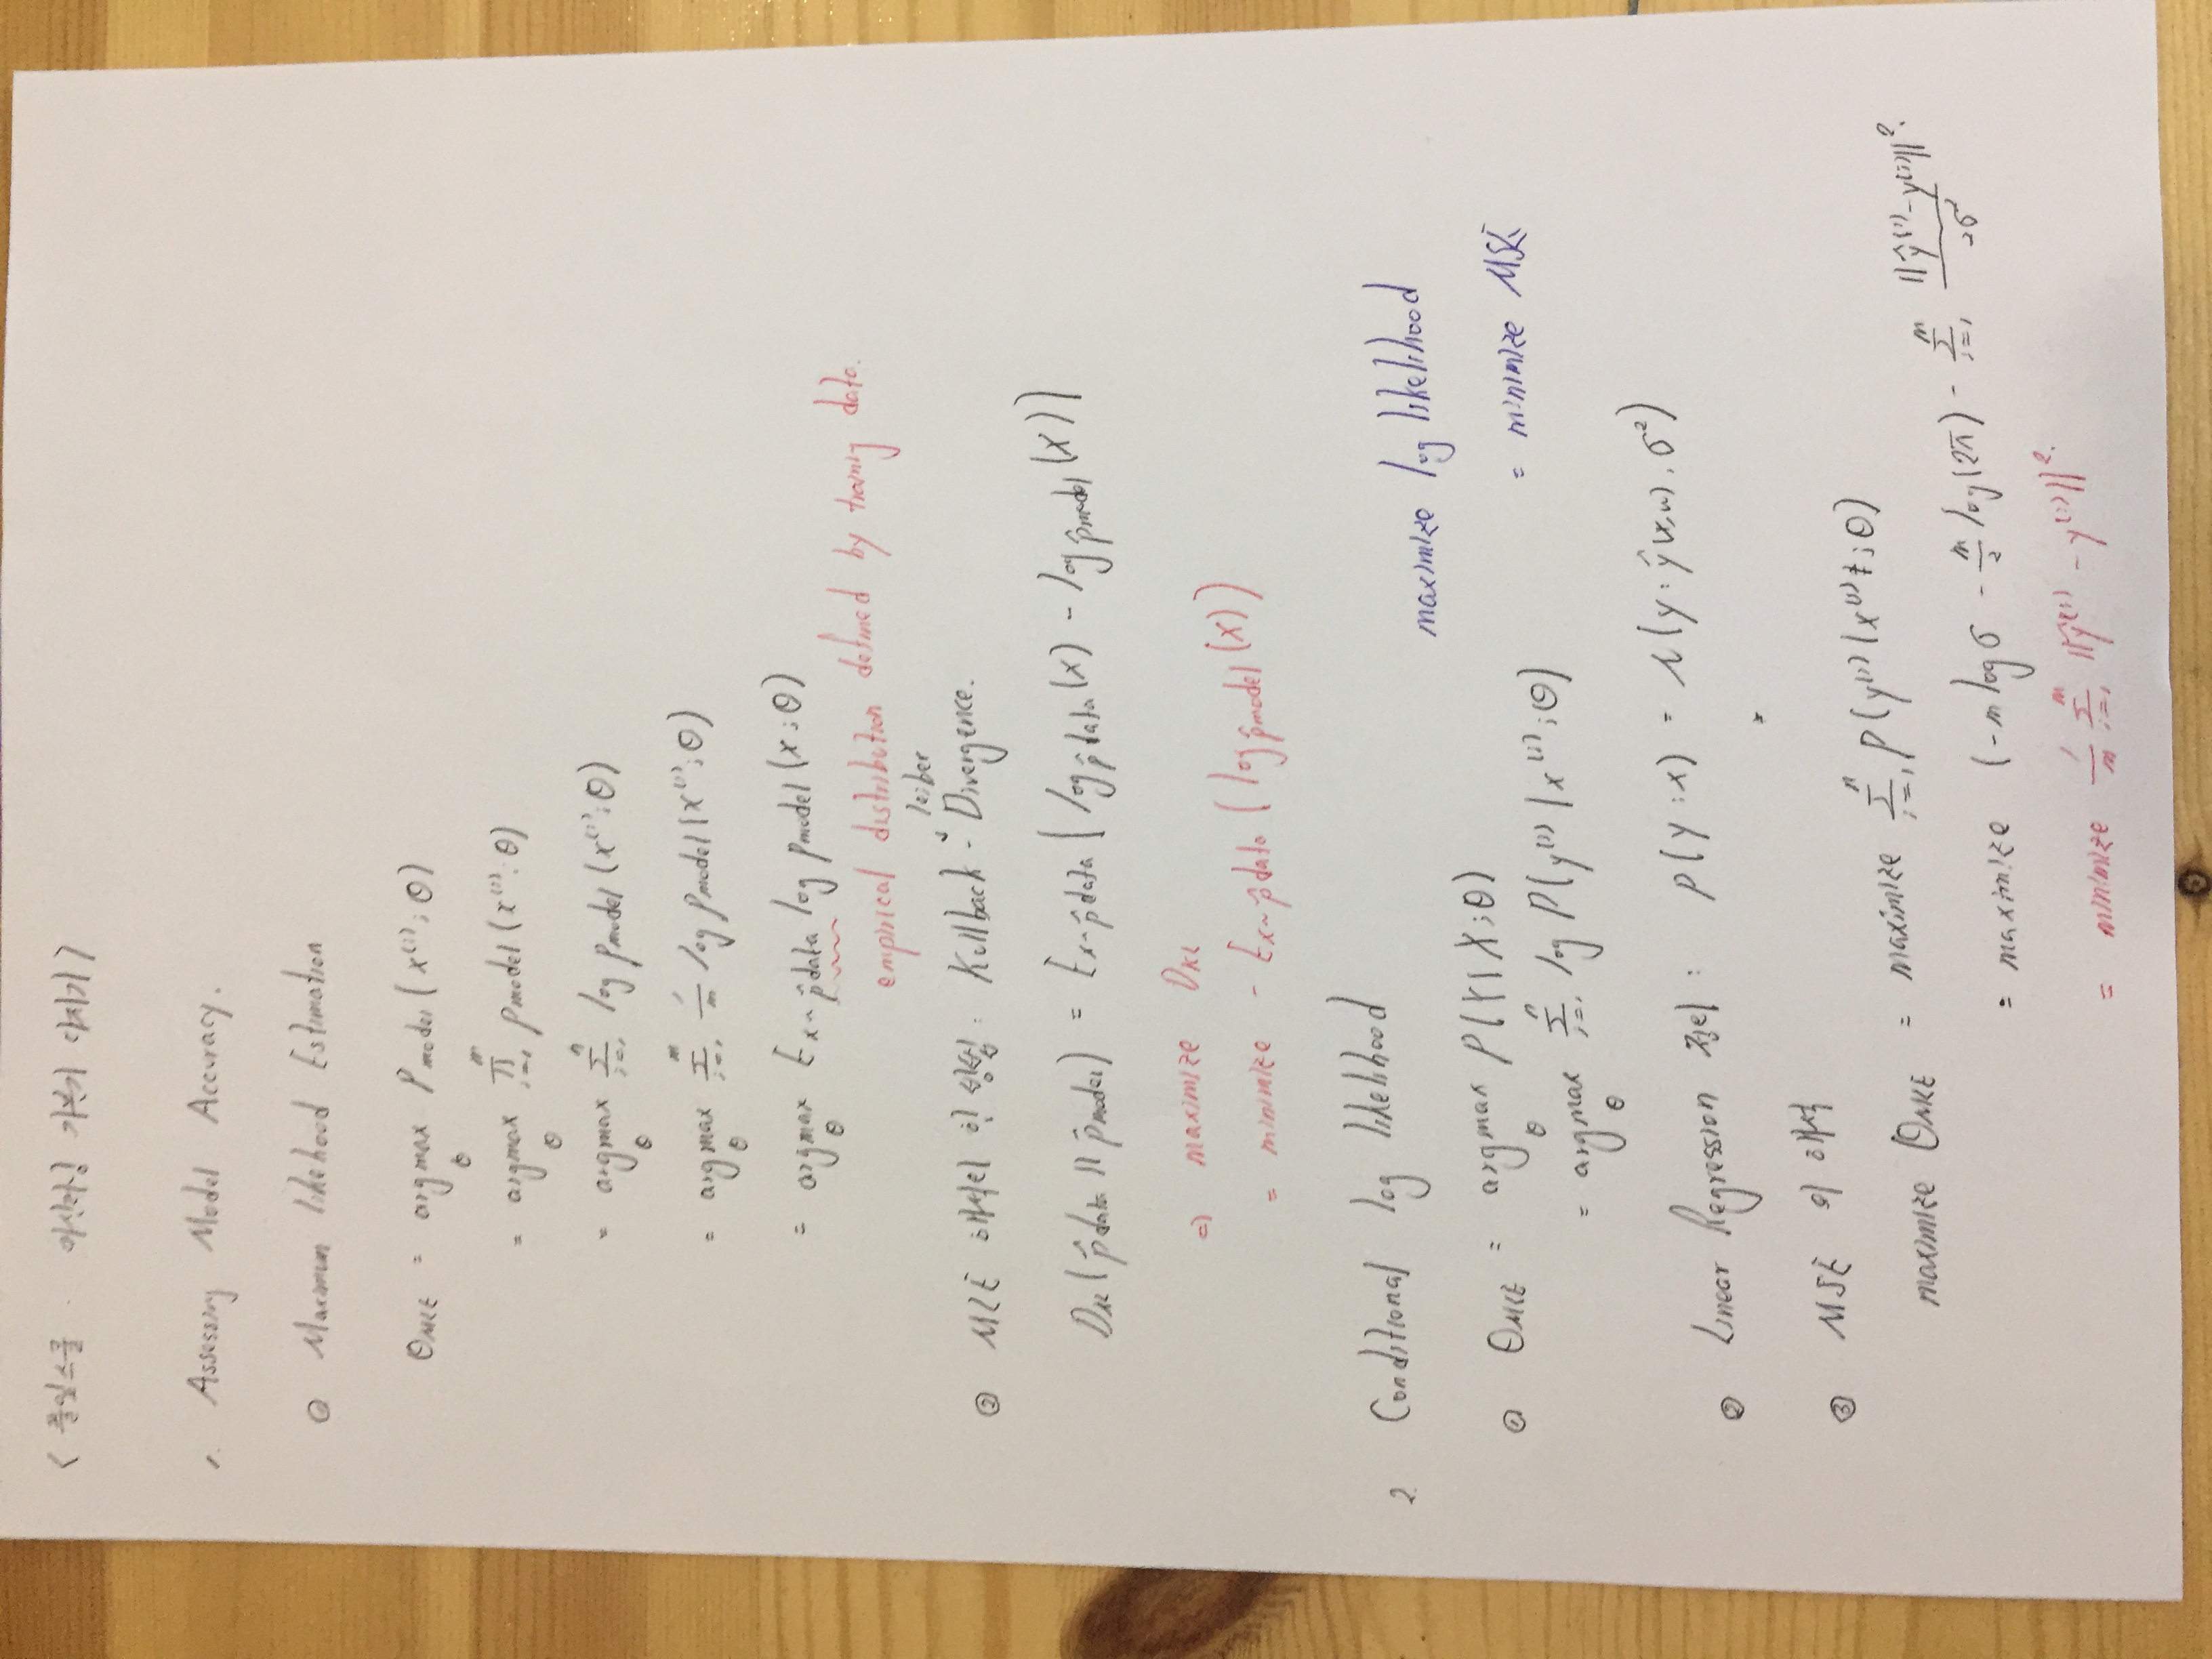 < 풀잎스쿨 . 머신러닝 기본기 다지기 >
1. Assessing Model Accuracy.
① Maximum likehood Estimation
θMLE = argmax_θ Pmodel(x^(i); θ)
= argmax_θ ∏_{i=1}^m pmodel(x^(i); θ)
= argmax_θ Σ_{i=1}^n log pmodel(x^(i); θ)
= argmax_θ Σ_{i=1}^m 1/m log pmodel(x^(i); θ)
= argmax_θ E_{x~p̂data} log pmodel(x; θ)
empirical distribution defined by training data.
leiber
② MLE 해석의 한 방법 : Kullback - Divergence.
DKL(p̂data || p̂model) = E_{x~p̂data} [log p̂data(x) - log p̂model(x)]
⇒ maximize DKL
= minimize - E_{x~p̂data} (log p̂model(x))
2. Conditional log likelihood
maximize log likelihood
= minimize MSE
① θMLE = argmax_θ P(Y|X;θ)
= argmax_θ Σ_{i=1}^n log P(y^(i) | x^(i); θ)
② Linear Regression 정의 : p(y:x) = N(y: ŷ(x,w), σ²)
③ MSE 의 해석
maximize θMLE = maximize Σ_{i=1}^n P(y^(i) | x^(i); θ)
= maximize (-m log σ - m/2 log(2π) - Σ_{i=1}^m ||ŷ^(i) - y^(i)||² / 2σ²
= minimize 1/m Σ_{i=1}^m ||ŷ^(i) - y^(i)||².